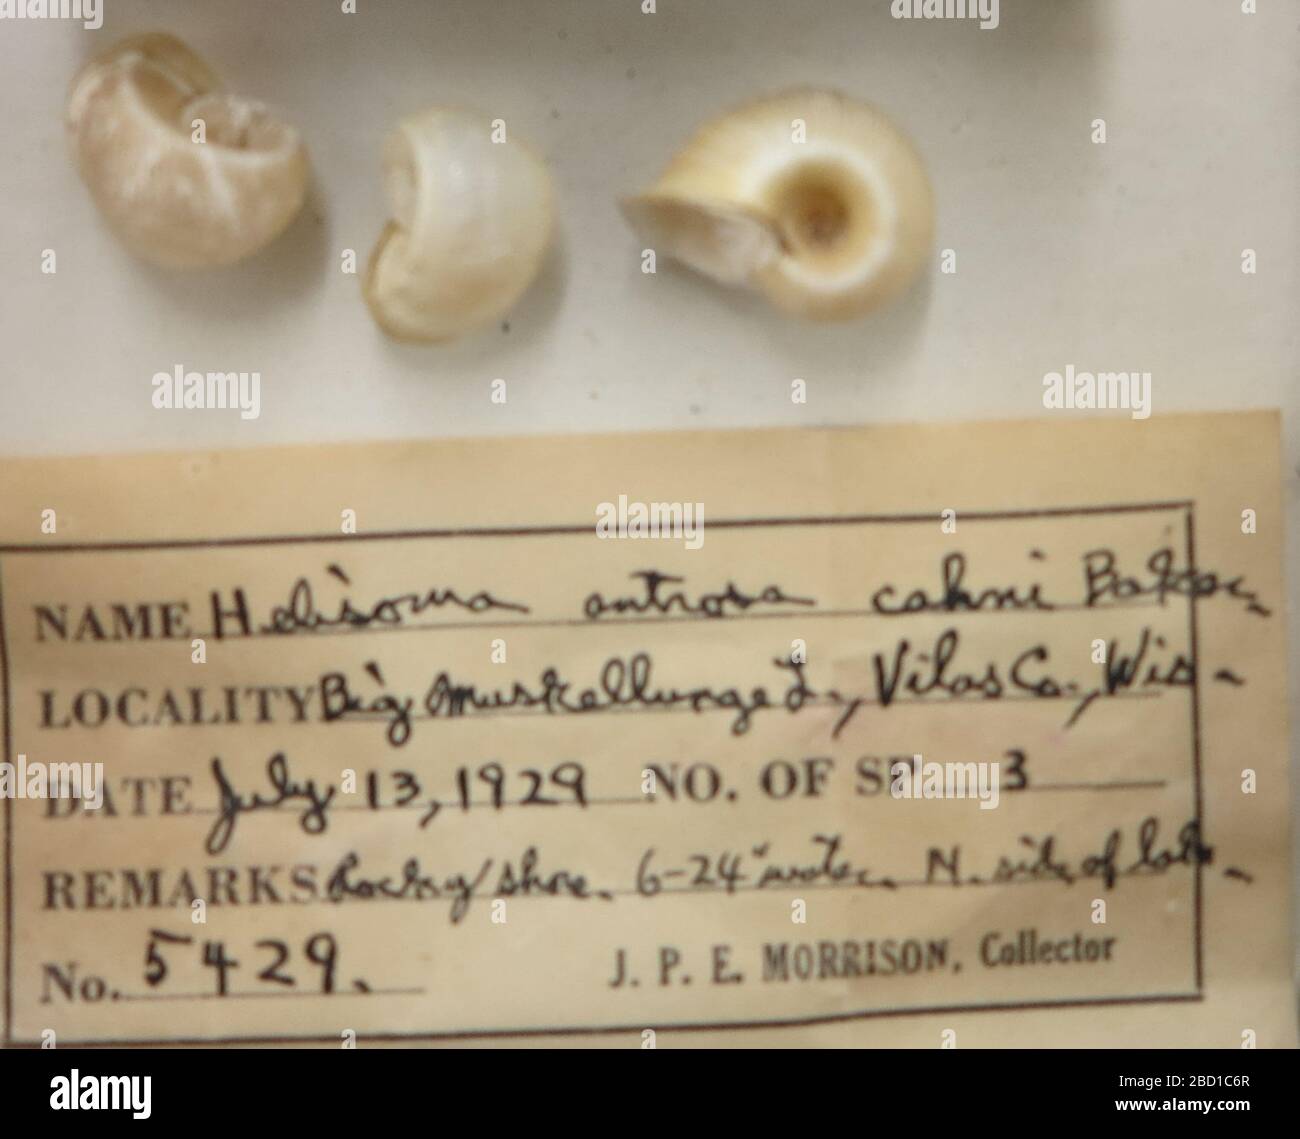 NAME Helisoma antrosa cahni Baker
LOCALITY Big Muskellunge L., Vilas Co., Wis.
DATE July 13, 1929 NO. OF SP. 3
REMARKS Rocky shore. 6-24" water. N. side of lake.
No. 5429.
J. P. E. MORRISON, Collector
alamy
Image ID: 2BD1C6R
www.alamy.com